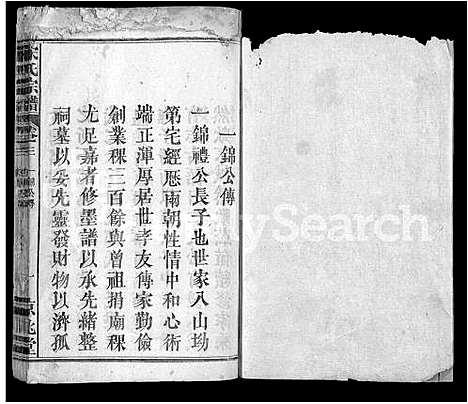 一錦公傳
一錦禮公長子也世家入山坳
第宅經歷兩朝性情中和心術
端正渾厚居世孝友傳家勤儉
創業稞三百餘與曾祖捐廟稞
尤足嘉者修墨譜以承先緒整
祠墓以妥先靈發財物以濟孤
宋氏宗譜
卷三
一
京兆堂
FamilySearch